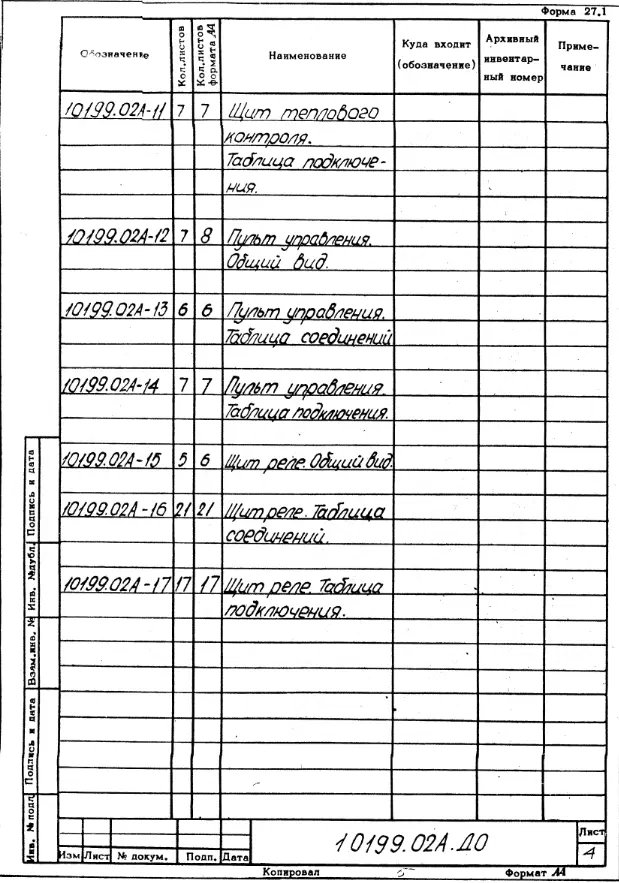 Форма 27.1
Обозначение Кол.листов Кол.листов формата А4 Наименование Куда входит (обозначение) Архивный инвентарный номер Примечание
10199.02А-11 7 7 Щит теплового
контроля.
Таблица подключе-
ния.
10199.02А-12 7 8 Пульт управления.
Общий вид.
10199.02А-13 6 6 Пульт управления.
Таблица соединений
10199.02А-14 7 7 Пульт управления.
Таблица подключения.
10199.02А-15 5 6 Щит реле. Общий вид.
10199.02А-16 21 21 Щит реле. Таблица
соединений.
10199.02А-17 17 17 Щит реле. Таблица
подключения.
Инв. № подл Подпись и дата Взам.инв. № Инв. №дубл. Подпись и дата
10199.02А.ДО
Лист
4
Изм Лист № докум. Подп. Дата
Копировал Формат А4